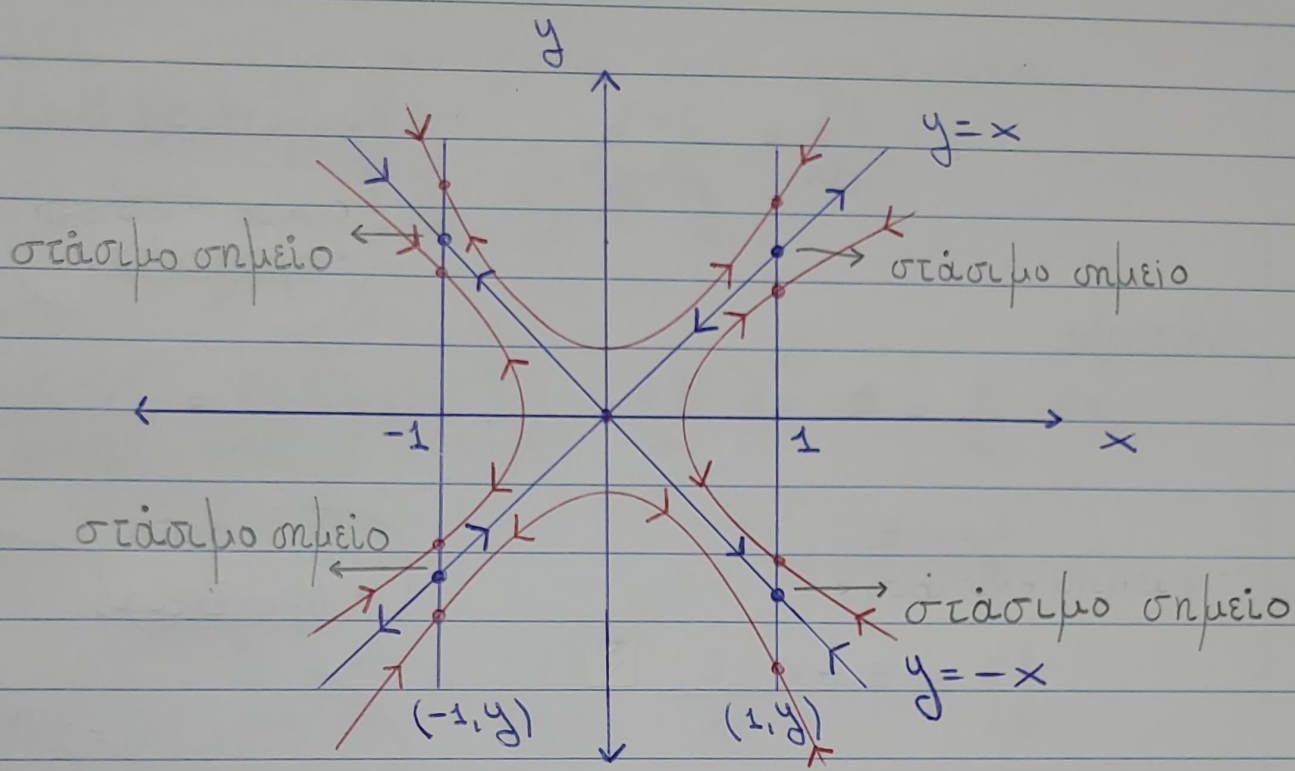 y
y=x
στάσιμο σημείο
στάσιμο σημείο
-1
1
x
στάσιμο σημείο
στάσιμο σημείο
y=-x
(-1,y)
(1,y)